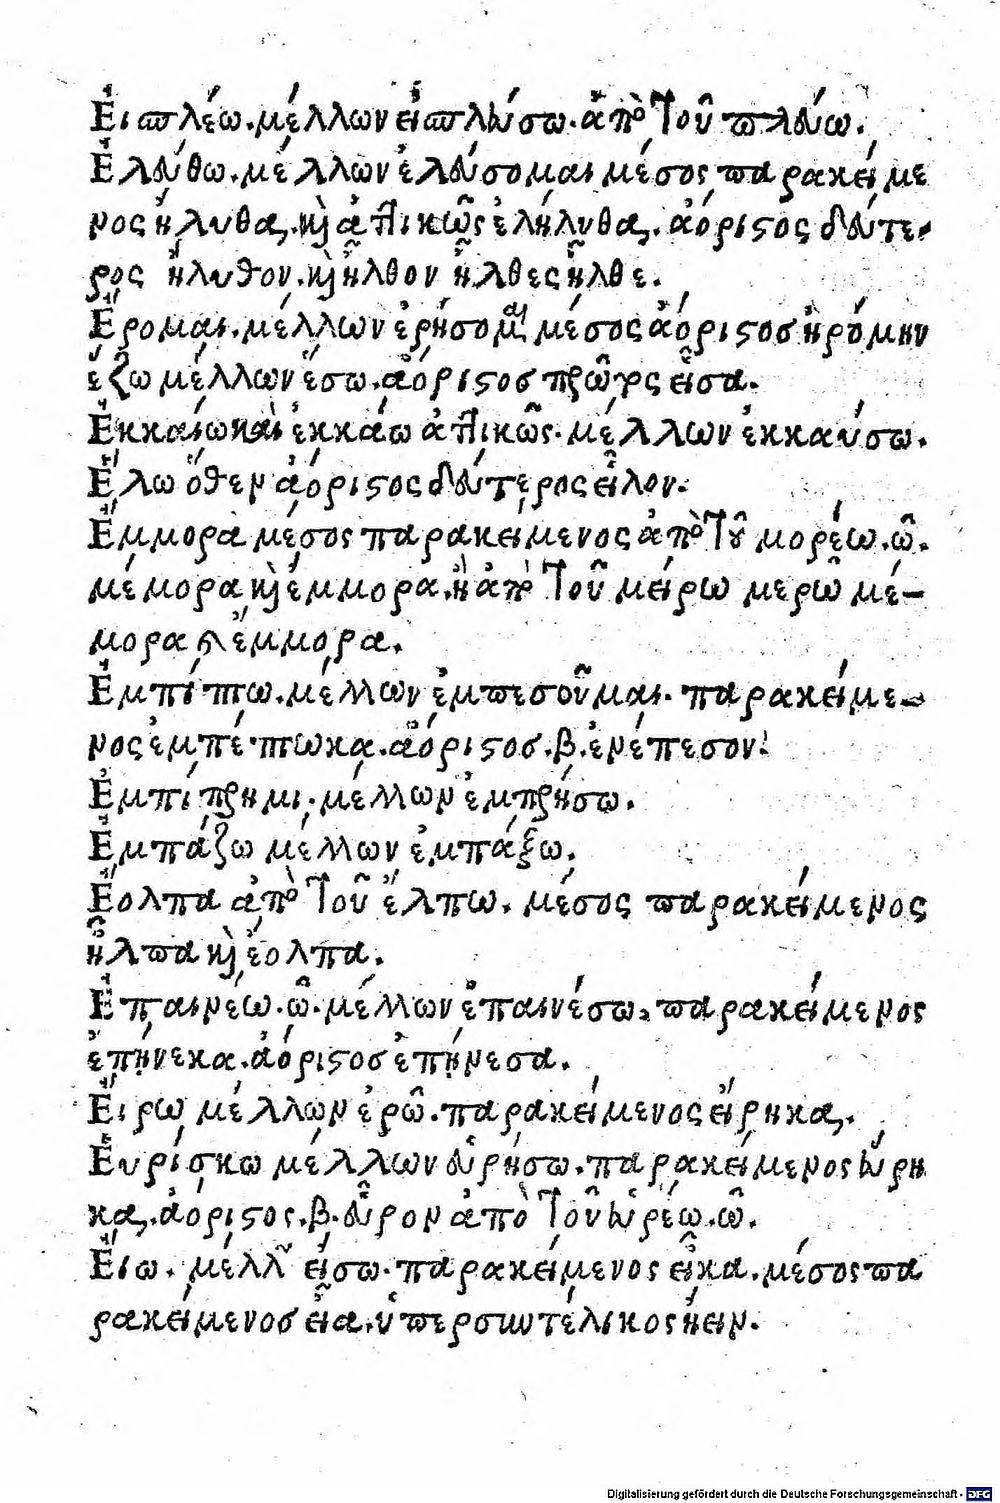 Ἐισπλέω. μέλλων εἰσπλεύσω. ἀπὸ τοῦ πλεύω.
Ἐλεύθω. μέλλων ἐλεύσομαι μέσος παρακείμε
νος ἤλυθα. καὶ ἀττικῶς ἐλήλυθα. ἀόριστος δεύτε-
ρος ἤλυθον. καὶ ἦλθον ἦλθες ἦλθε.
Ἔρομαι. μέλλων ἐρήσομαι μέσος ἀόριστος ἠρόμην
ἕζω μέλλων ἕσω. ἀόριστος πρῶτος εἷσα.
Ἐκκαίω καὶ ἐκκάω ἀττικῶς. μέλλων ἐκκαύσω.
Ἕλω ὅθεν ἀόριστος δεύτερος εἷλον.
Ἔμμορα μέσος παρακείμενος ἀπὸ τοῦ μορέω. ῶ.
μέμορα καὶ ἔμμορα. ἢ ἀπὸ τοῦ μείρω μερῶ μέ-
μορα καὶ ἔμμορα.
Ἐμπίπτω. μέλλων ἐμπεσοῦμαι. παρακείμε-
νος ἐμπέπτωκα. ἀόριστος. β. ἐνέπεσον.
Ἐμπίπρημι. μέλλων ἐμπρήσω.
Ἐμπάζω μέλλων ἐμπάξω.
Ἔολπα ἀπὸ τοῦ ἔλπω. μέσος παρακείμενος
ἦλπα καὶ ἔολπα.
Ἐπαινέω. ῶ. μέλλων ἐπαινέσω. παρακείμενος
ἐπῄνεκα. ἀόριστος ἐπῄνεσα.
Ἔιρω μέλλων ἐρῶ. παρακείμενος εἴρηκα.
Ἑυρίσκω μέλλων εὑρήσω. παρακείμενος εὕρη
κα. ἀόριστος. β. εὗρον ἀπὸ τοῦ εὑρέω. ῶ.
Ἔιω. μέλλων εἴσω. παρακείμενος εἶκα. μέσος πα
ρακείμενος εἶα. ὑπερσυντέλικος ἤειν.
Digitalisierung gefördert durch die Deutsche Forschungsgemeinschaft - DFG